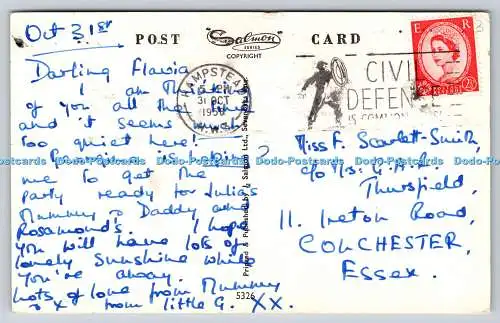 Oct 31st
POST
Salmon
SERIES
COPYRIGHT
CARD
Darling Flavia
I am thinking
of you all the time
and it seems much
too quiet here!
me To get the
party ready for Julia's
Mummy & Daddy and
Rosamond's. I hope
you will have lots of
lovely Sunshine while
you're away.
Lots of love from Mummy
x x from little G. XX.
Printed & Published by J. Salmon Ltd., Sevenoaks
5326
HAMPSTEAD
31 OCT
N.W.3
CIVIL
DEFENCE
IS COMMON
E R
2½
Miss F. Scarlett-Smith,
c/o Mrs. G.
Thursfield,
11. Ireton Road,
COLCHESTER,
Essex.
Postcards Postcards Postcards